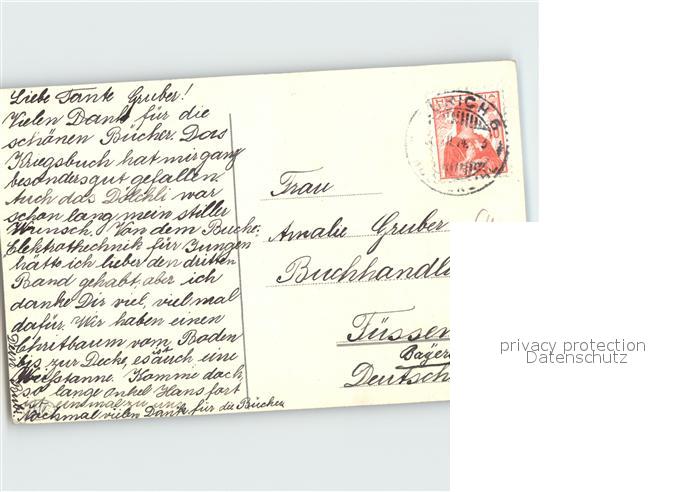 Liebe Tante Gruber!
Vielen Dank für die
schönen Bücher. Das
Kriegsbuch hat mir ganz
besonders gut gefallen.
Auch das Dolchli war
schon lang mein stiller
Wunsch. Von dem Buche:
Elektrothechnik für Jungen
hätte ich lieber den dritten
Band gehabt, aber ich
danke Dir viel, viel mal
dafür. Wir haben einen
Chritbaum vom Boden
bis zur Decke, es ist auch eine
Weisstanne. Komme doch
so lange Onkel Hans fort
ist einmal zu uns
Nochmal vielen Dank für die Bücher
Frau
Amalie Gruber
Buchhandl
Füssen
Bayer
Deutsch
ZÜRICH 6
privacy protection
Datenschutz